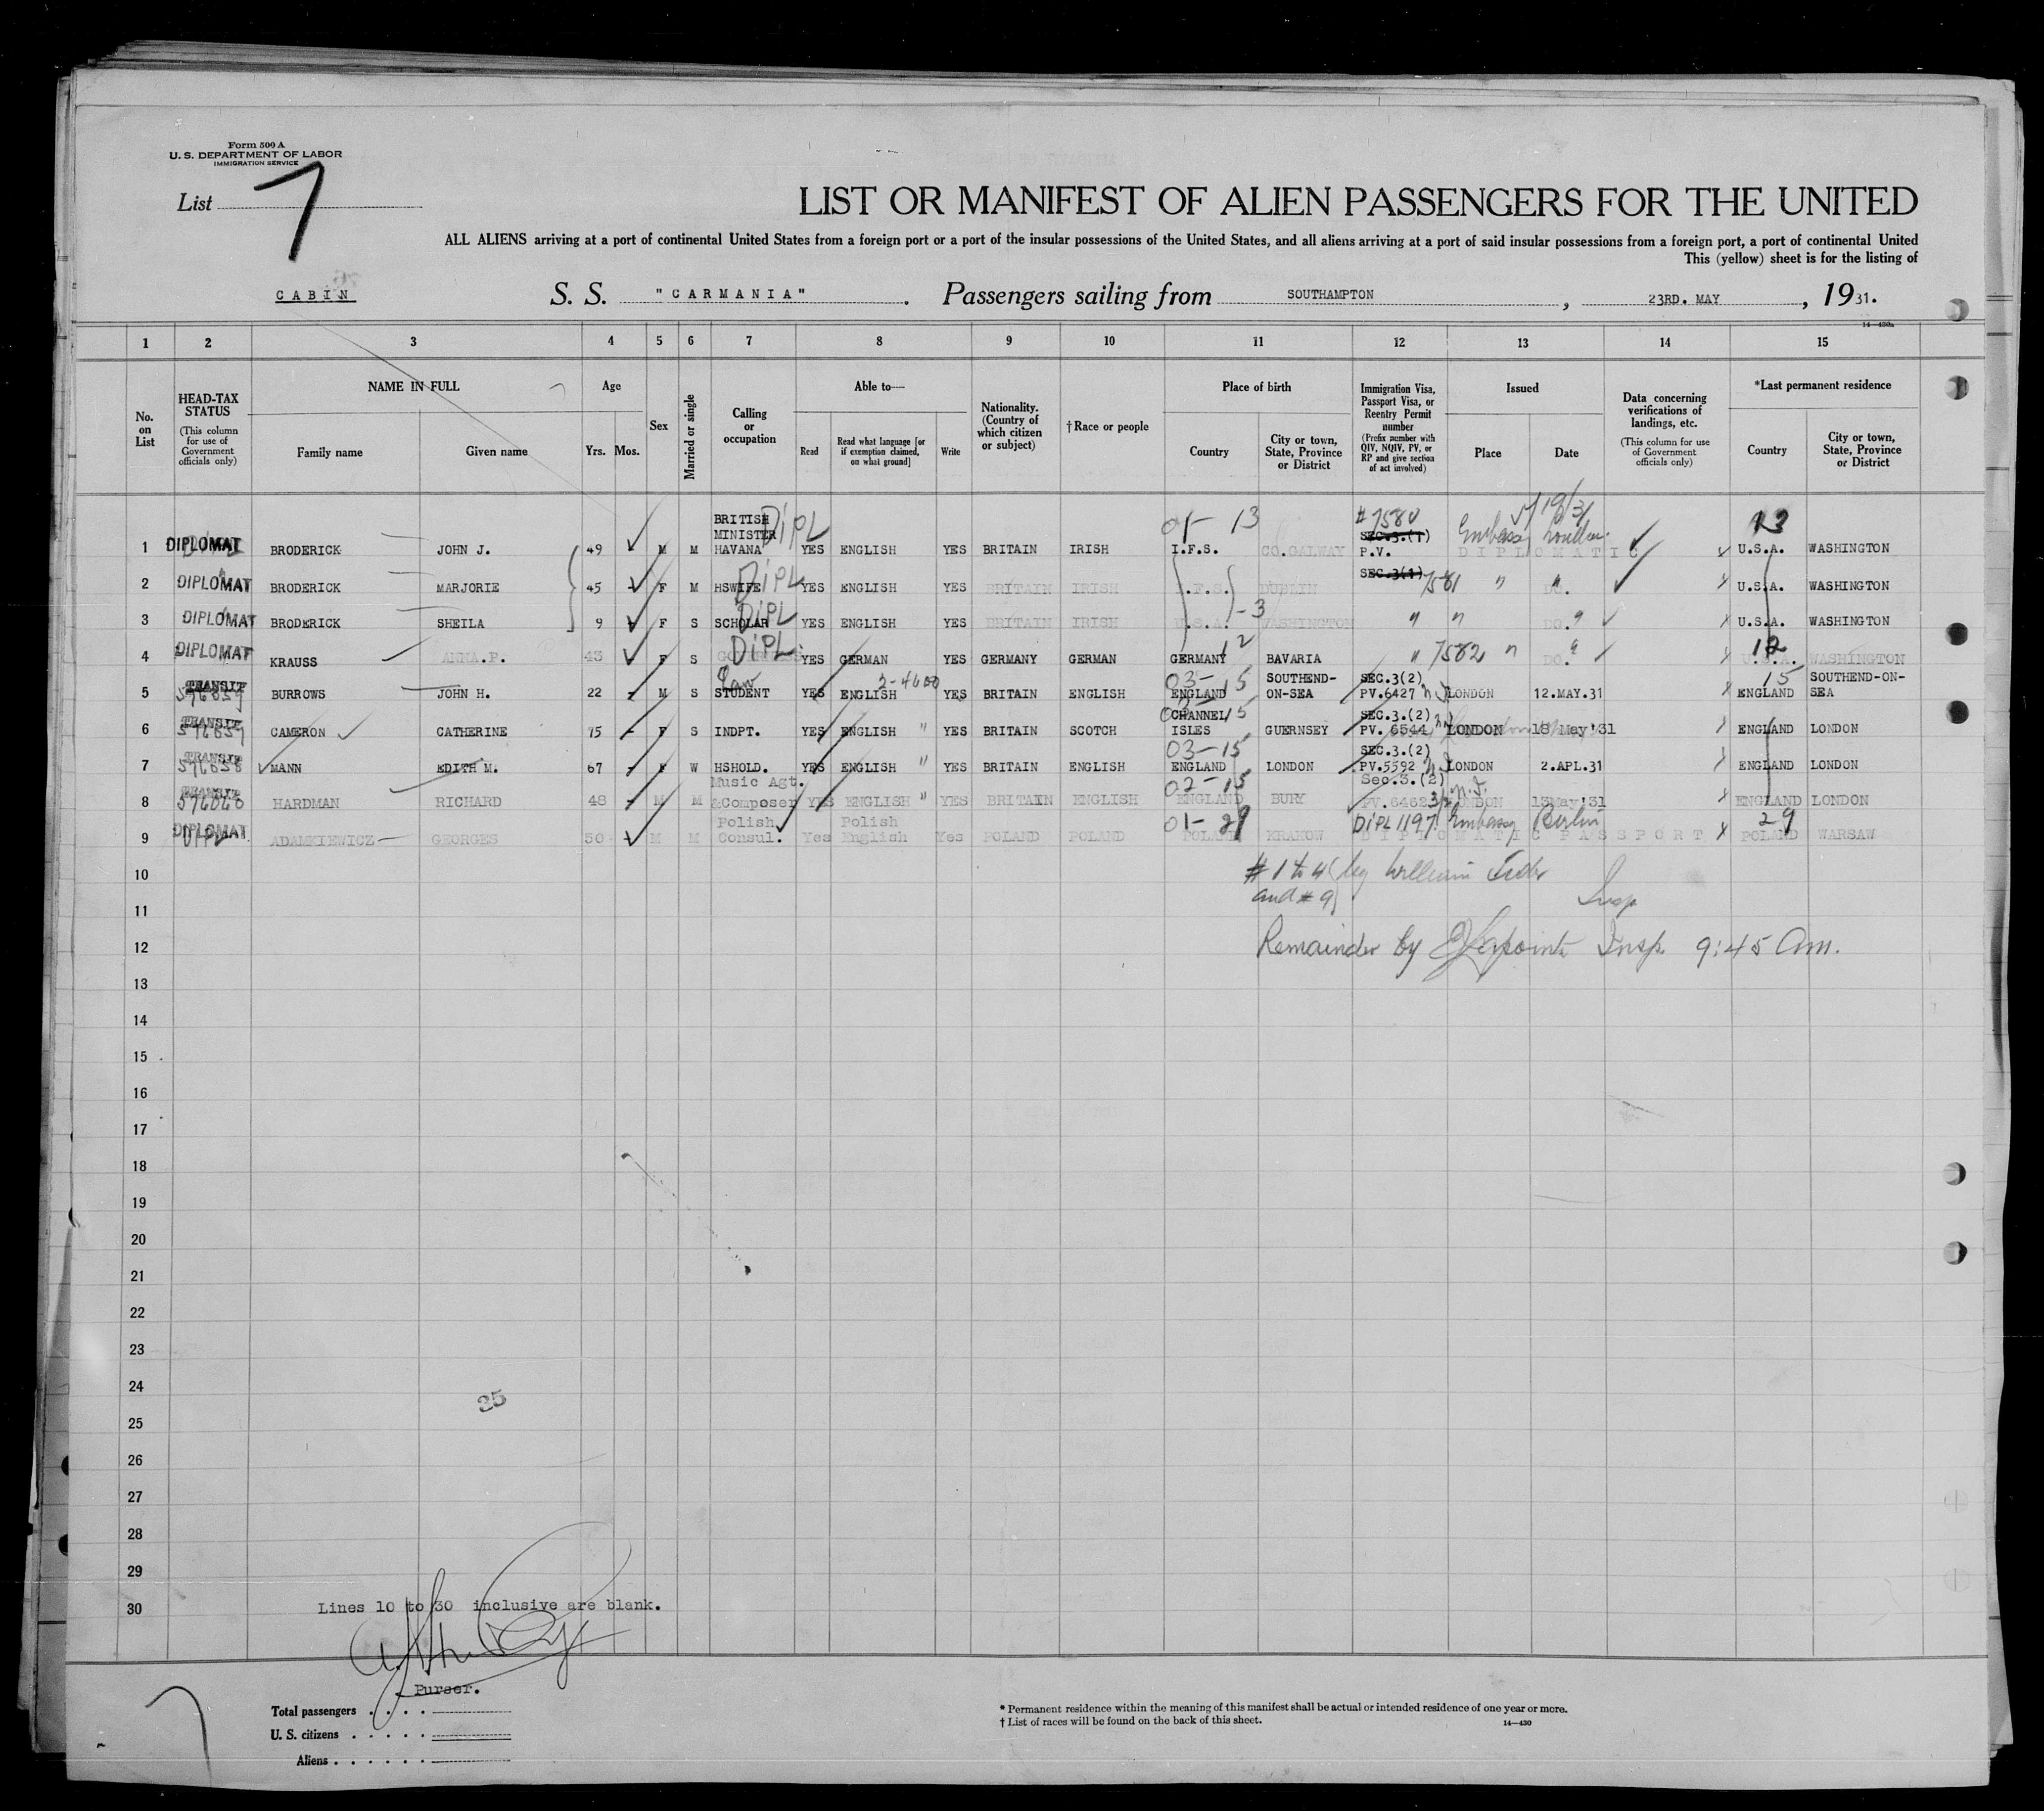 Form 500 A
U. S. DEPARTMENT OF LABOR
IMMIGRATION SERVICE
List 7
LIST OR MANIFEST OF ALIEN PASSENGERS FOR THE UNITED
ALL ALIENS arriving at a port of continental United States from a foreign port or a port of the insular possessions of the United States, and all aliens arriving at a port of said insular possessions from a foreign port, a port of continental United
This (yellow) sheet is for the listing of
CABIN S. S. "CARMANIA". Passengers sailing from SOUTHAMPTON, 23RD. MAY, 1931.
14—430a
1 2 3 4 5 6 7 8 9 10 11 12 13 14 15
No. on List
HEAD-TAX STATUS (This column for use of Government officials only)
NAME IN FULL Family name Given name
Age Yrs. Mos.
Sex
Married or single
Calling or occupation
Able to— Read Read what language [or if exemption claimed, on what ground] Write
Nationality. (Country of which citizen or subject)
†Race or people
Place of birth Country City or town, State, Province or District
Immigration Visa, Passport Visa, or Reentry Permit number (Prefix number with QIV, NQIV, PV, or RP and give section of act involved)
Issued Place Date
Data concerning verifications of landings, etc. (This column for use of Government officials only)
*Last permanent residence Country City or town, State, Province or District
1 DIPLOMAT BRODERICK JOHN J. 49 M M BRITISH MINISTER HAVANA DIPL YES ENGLISH YES BRITAIN IRISH 01-13 I.F.S. CO.GALWAY #7580 SEC.3.(1) P.V. Embassy London DIPLOMATIC 13 U.S.A. WASHINGTON
2 DIPLOMAT BRODERICK MARJORIE 45 F M HSWIFE DIPL YES ENGLISH YES BRITAIN IRISH I.F.S. DUBLIN SEC.3(1) 7581 " " DO. U.S.A. WASHINGTON
3 DIPLOMAT BRODERICK SHEILA 9 F S SCHOLAR DIPL YES ENGLISH YES BRITAIN IRISH U.S.A. -3 WASHINGTON " " DO. " U.S.A. WASHINGTON
4 DIPLOMAT KRAUSS ANNA.P. 43 F S DIPL YES GERMAN YES GERMANY GERMAN 12 GERMANY BAVARIA " 7582 " DO. " 12 U.S.A. WASHINGTON
5 TRANSIT 576859 BURROWS JOHN H. 22 M S Law STUDENT YES ENGLISH YES BRITAIN ENGLISH 03-15 ENGLAND SOUTHEND-ON-SEA SEC.3(2) PV.6427 LONDON 12.MAY.31 15 ENGLAND SOUTHEND-ON-SEA
6 TRANSIT CAMERON CATHERINE 75 F S INDPT. YES ENGLISH " YES BRITAIN SCOTCH CHANNEL ISLES 15 GUERNSEY SEC.3.(2) PV. 6544 LONDON 18 May '31 ENGLAND LONDON
7 TRANSIT 576858 MANN EDITH M. 67 F W HSHOLD. YES ENGLISH " YES BRITAIN ENGLISH 03-15 ENGLAND LONDON SEC.3.(2) PV.5592 LONDON 2.APL.31 ENGLAND LONDON
8 TRANSIT HARDMAN RICHARD 48 M M Music Agt. &Composer YES ENGLISH " YES BRITAIN ENGLISH 02-15 ENGLAND BURY Sec.3.(2) PV.6462 LONDON 13May'31 ENGLAND LONDON
9 DIPLOMAT ADAMKIEWICZ GEORGES 50 M M Polish Consul. Yes Polish English Yes POLAND POLAND 01-29 POLAND KRAKOW DIPL 1197 Embassy Berlin DIPLOMATIC PASSPORT 29 POLAND WARSAW
10 # 1 to 4 by William
11 and # 9 Insp
12 Remainder by Insp. 9:45 Am.
13
14
15
16
17
18
19
20
21
22
23
24
25
26
27
28
29
30
25
Lines 10 to 30 inclusive are blank.
Purser.
Total passengers
U. S. citizens
Aliens
* Permanent residence within the meaning of this manifest shall be actual or intended residence of one year or more.
† List of races will be found on the back of this sheet.
14—430